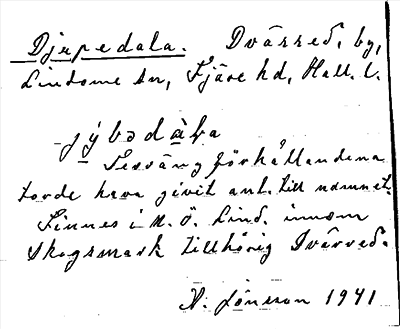 Djupedala. Dvärred, by,
Lindome sn, Fjäre hd, Hall. l.
jýbədàɫa
Terrängförhållandena
torde hava givit anl. till namnet.
Finnes i N. Ö. Lind. inom
skogsmark tillhörig Dvärred.
Jönsson 1941